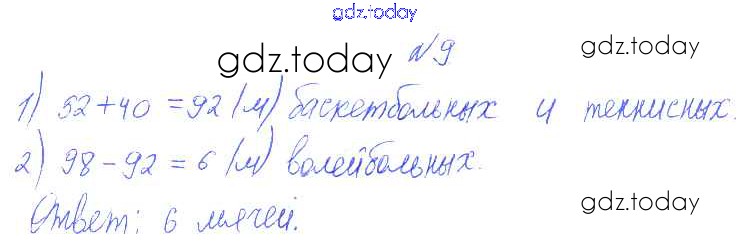 gdz.today
gdz.today №9 gdz.today
1) 52+40 = 92 (м) баскетбольных и теннисных.
2) 98-92 = 6 (м) волейбольных.
Ответ: 6 мячей. gdz.today